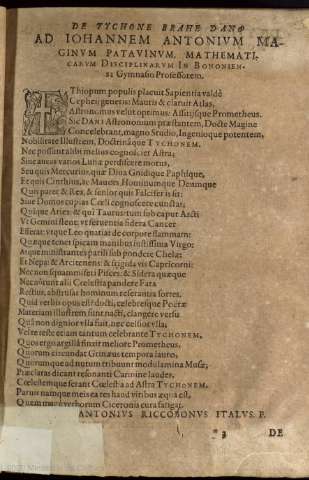 DE TYCHONE BRAHE DANO
AD IOHANNEM ANTONIVM MA-
GINVM PATAVINVM, MATHEMATI-
CARVM DISCIPLINARVM IN BONONIEN-
SI Gymnasio Professorem.
ÆThiopum populis placuit Sapientia valdè
Cephei; generosi Mauris & claruit Atlas,
Astronomus velut optimus; Assirijsque Prometheus.
Sic DANI Astronomiam præstantem, Docte Magine
Concelebrant, magno Studio, Ingenioque potentem,
Nobilitate Illustrem, Doctrinâque TYCHONEM.
Nec possunt alibi melius cognosci, iter Astra;
Siue aueas varios Lunæ perdiscere motus,
Seu quis Mercurius, quæ Diua Gnidique Paphique,
Et quis Cinthius, & Mauors, Hominumque Deumque
Quis pater & Rex, & senior quis Falcifer ipsit:
Siue Domus copias Cœli cognoscere cunctas;
Quique Aries & qui Taurus tum sub caput Arcti
Vt Gemini stent; vt feruentis sidera Cancer
Efferat; vtque Leo quatiat de corpore flammam:
Quæque tenet spicam manibus iustissima Virgo:
Atque ministrantes parili sub pondere Chelæ:
Et Nepa: & Arcitenens: & frigida vis Capricorni:
Nec non squammiseri Pisces: & Sidera quæque
Nec norunt alij Cœlestia pandere Fata
Rectius, abstrusas hominum referantia sortes.
Quid verbis opus est? docti, celebresque Poëtæ
Materiam illustrem sunt nacti, clangere versu
Quâ non dignior vlla fuit, nec celsior vlla,
Velte reste etiam tantum celebrante TYCHONEM.
Quos ergo argillâ finxit meliore Prometheus,
Quorum circundat Grinæus tempora lauro,
Quorumque ad nutum tribuunt modulamina Musæ;
Præclaras dicant resonanti Carmine laudes,
Cœlestemque ferant Cœlestia ad Astra TYCHONEM.
Parui namque meis ea res haud viribus æqua est,
Quem tractæ verborum Ciceronis cura fatigat.
ANTONIUS RICCOBONVS ITALVS. P.
* 3
DE